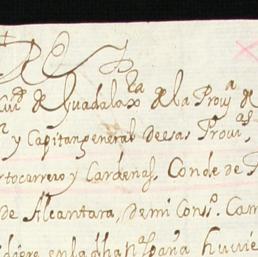 Ciud de Guadalaxra de la Prouª de
y Capitan general de esas Prouias,
rtocarrero y Cardenas, Conde de P
de Alcantara, de mi Conso. Cam
en la dha nª españa huuie